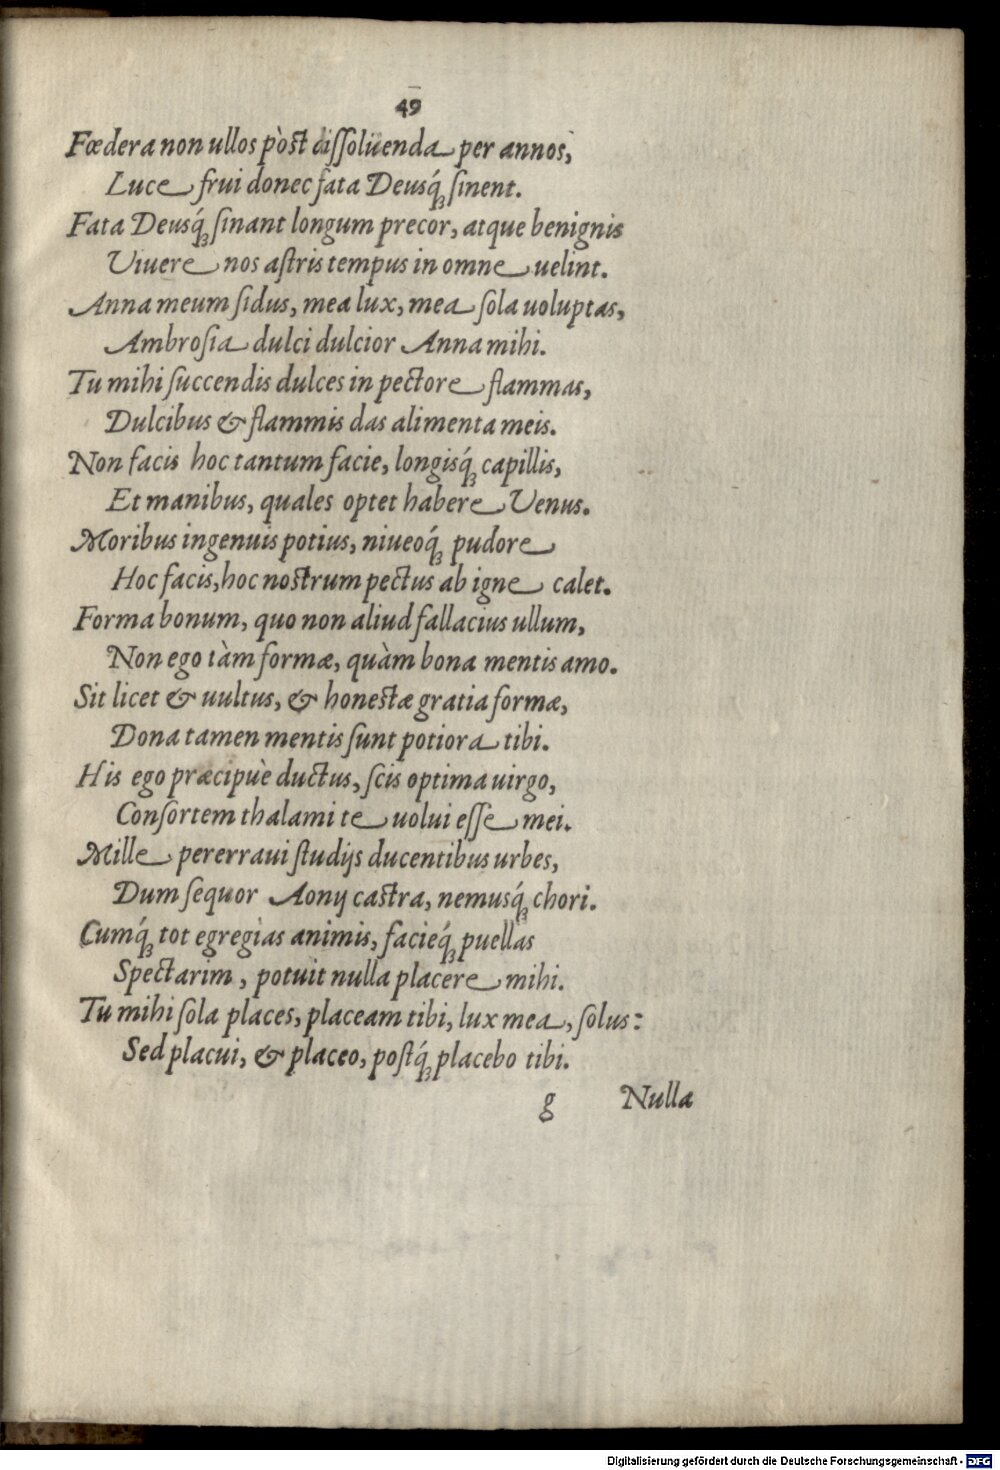 49
Fœdera non ullos pòst dissoluenda per annos,
Luce frui donec fata Deusq́; sinent.
Fata Deusq́; sinant longum precor, atque benignis
Viuere nos astris tempus in omne uelint.
Anna meum sidus, mea lux, mea sola uoluptas,
Ambrosia dulci dulcior Anna mihi.
Tu mihi succendis dulces in pectore flammas,
Dulcibus & flammis das alimenta meis.
Non facis hoc tantum facie, longisq́; capillis,
Et manibus, quales optet habere Venus.
Moribus ingenuis potius, niueoq́; pudore
Hoc facis, hoc nostrum pectus ab igne calet.
Forma bonum, quo non aliud fallacius ullum,
Non ego tàm formæ, quàm bona mentis amo.
Sit licet & uultus, & honestæ gratia formæ,
Dona tamen mentis sunt potiora tibi.
His ego præcipuè ductus, scis optima uirgo,
Consortem thalami te uolui esse mei.
Mille pererraui studijs ducentibus urbes,
Dum sequor Aonij castra, nemusq́; chori.
Cumq́; tot egregias animis, facieq́; puellas
Spectarim, potuit nulla placere mihi.
Tu mihi sola places, placeam tibi, lux mea, solus:
Sed placui, & placeo, postq́; placebo tibi.
g Nulla
Digitalisierung gefördert durch die Deutsche Forschungsgemeinschaft - DFG